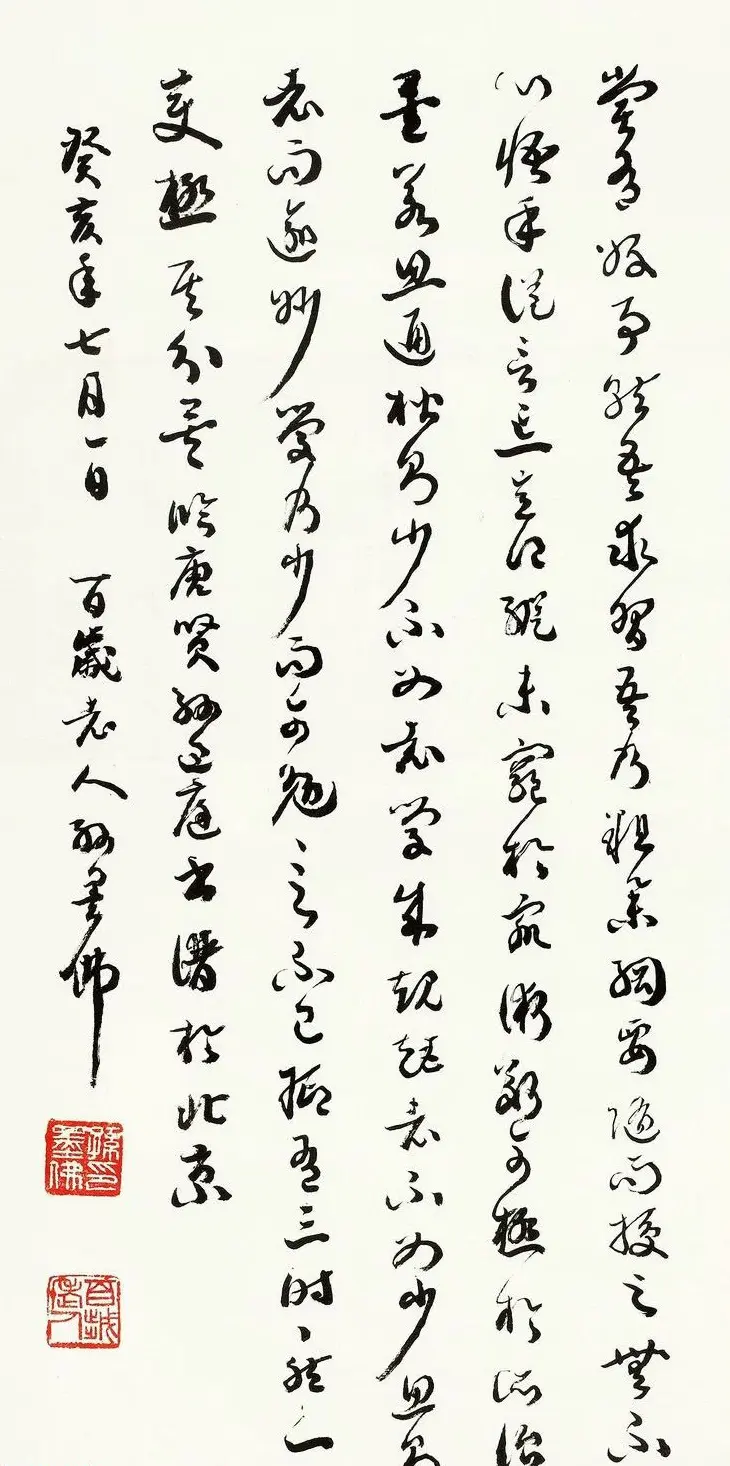 嘗有好事就吾求習吾乃粗舉綱要隨而授之無不
心悟手從言忘意得縱未窮於眾術斷可極於所詣
矣若思通楷則少不如老學成規矩老不如少思則
老而逾妙學乃少而可勉々之不已抑有三時々然一
變極其分矣臨唐賢孫過庭書譜於北京
癸亥年七月一日 百歲老人孫墨佛
孫墨佛印
百歲老人